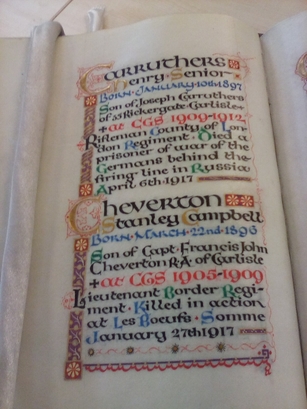 Carruthers
Henry Senior
Born · January 10th 1897
Son of Joseph Carruthers
of 55 Rickergate · Carlisle +
+ at CGS 1909-1912
Rifleman County of Lon-
don Regiment · Died a
prisoner of war of the
Germans behind the
firing-line in Russia
April 6th · 1917
Cheverton
Stanley Campbell
Born · March · 22nd · 1896
Son of Capt · Francis John
Cheverton R·A· of Carlisle
+ at CGS 1905-1909
Lieutenant Border Regi-
ment · Killed in action
at Les Boeufs · Somme
January 27th 1917